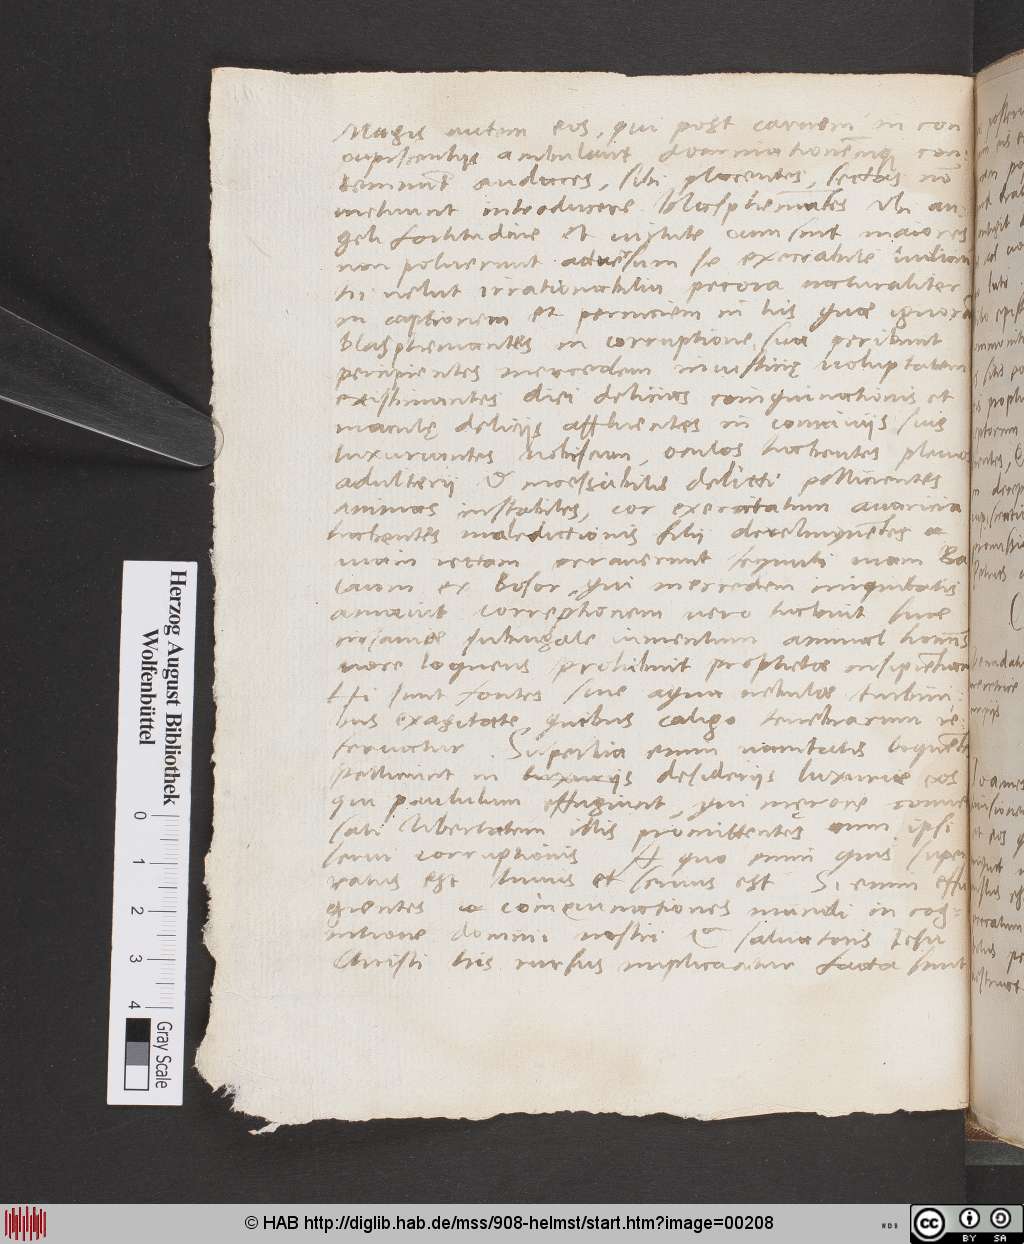 Magis autem eos, qui post carnem in con
cupiscentijs ambulant dominationemq; con
temnunt audaces, sibi placentes, sectas nō
metuunt introducere blasphemātes Vbi an
geli fortitudine et virtute cum sint maiores
non potuerunt aduersum se execrabile iudicium
hi velut irrationabilia pecora naturaliter
in captionem et perniciem in his quae ignorāt
blasphemantes in corruptione sua peribunt
percipientes mercedem iniusticię voluptatem
existimantes diei delicias coinquinationis et
maculę delicijs affluentes in conuiuijs suis
luxuriantes vobiscum, oculos habentes plenos
adulterij & incessabilis delicti pellicientes
animas instabiles, cor exercitatum auaricia
habentes maledictionis filij derelinquētes
viam rectam errauerunt sequuti viam Ba
laam ex Bosor, qui mercedem iniquitatis
amauit correptionem vero habuit suae
subiugale iumentum animal hominis
voce loquens prohibuit prophetae insipientiam
Hi sunt fontes sine aqua nebulae turbini
bus exagitate, quibus caligo tenebrarum re
seruatur Superbia enim vanitatis loquentes
pelliciunt in desiderijs luxuriae eos
qui paululum effugiunt, qui in errore conuer
sati libertatem illis promittentes cum ipsi
serui corruptionis A quo enim quis supe
ratus est huius et seruus est Si enim effu
gientes coinquinationes mundi in cog-
nitione domini nostri & saluatoris Jesu
Christi his rursus implicantur facta sunt
Herzog August Bibliothek
Wolfenbüttel
0 1 2 3 4
Gray Scale
© HAB http://diglib.hab.de/mss/908-helmst/start.htm?image=00208
WDB
cc BY SA